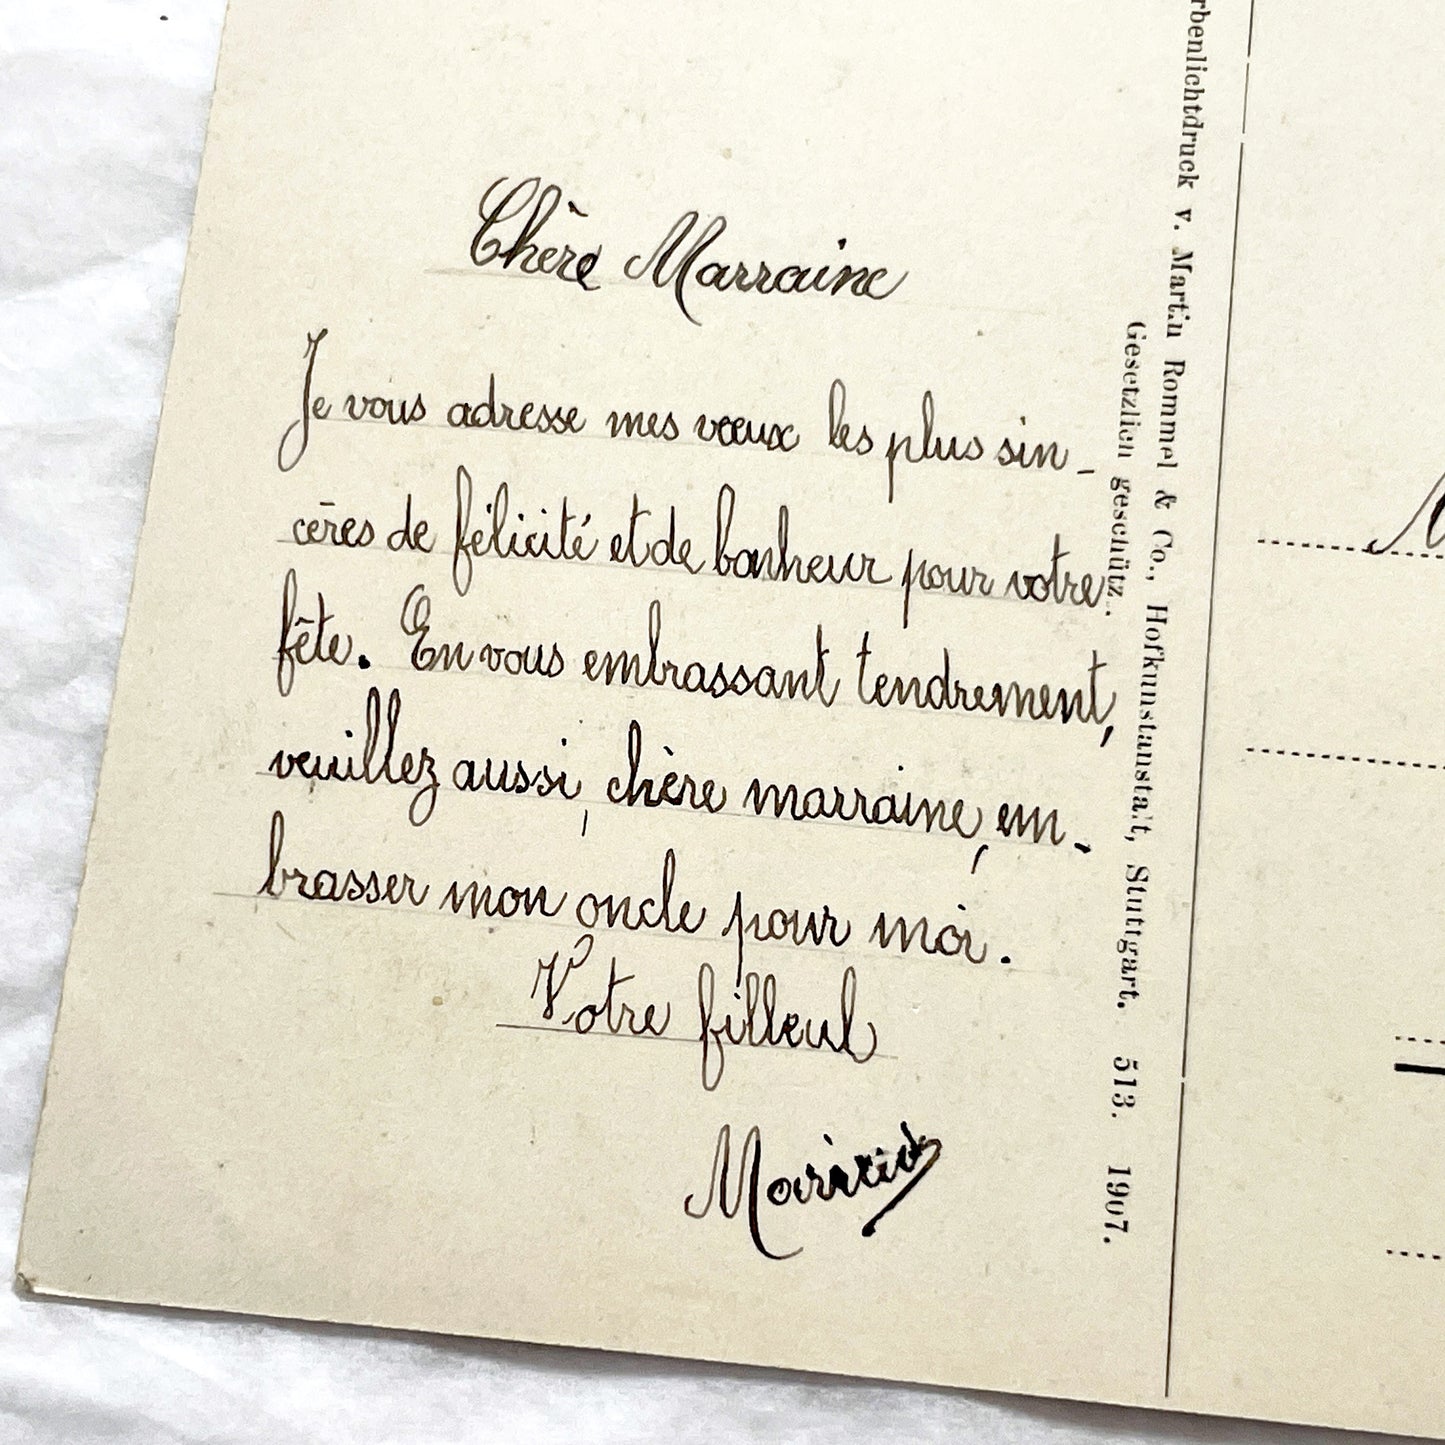 Chère Marraine
Je vous adresse mes vœux les plus sin-
cères de félicité et de bonheur pour votre
fête. En vous embrassant tendrement,
veuillez aussi, chère marraine, em-
brasser mon oncle pour moi.
Votre filleul
rbenlichtdruck v. Martin Rommel & Co., Hofkunstanstalt, Stuttgart. 513. 1907.
Gesetzlich geschützt.